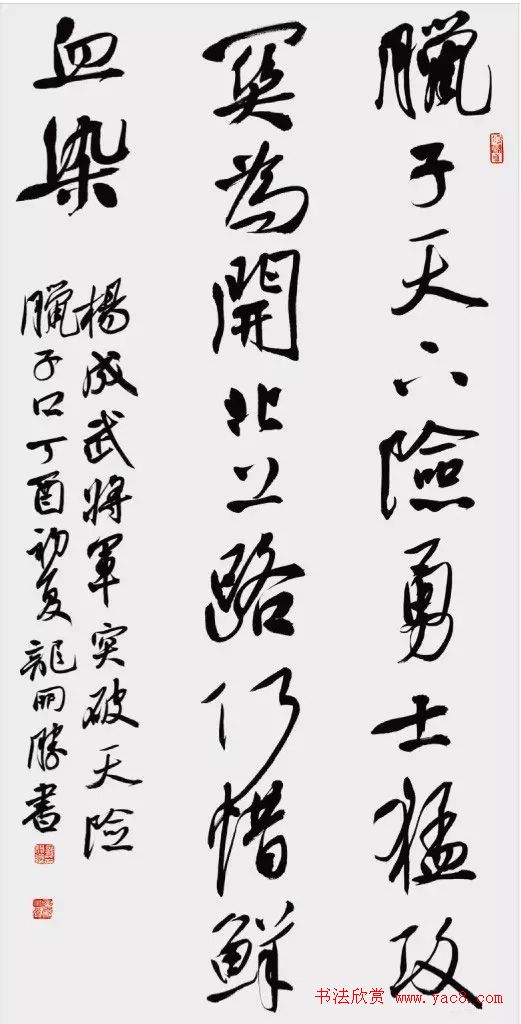 臘子天下險勇士猛攻
關為開北上路何惜鮮
血染
楊成武將軍突破天險
臘子口丁酉初夏龍開勝書
书法欣赏 www.yac8.com